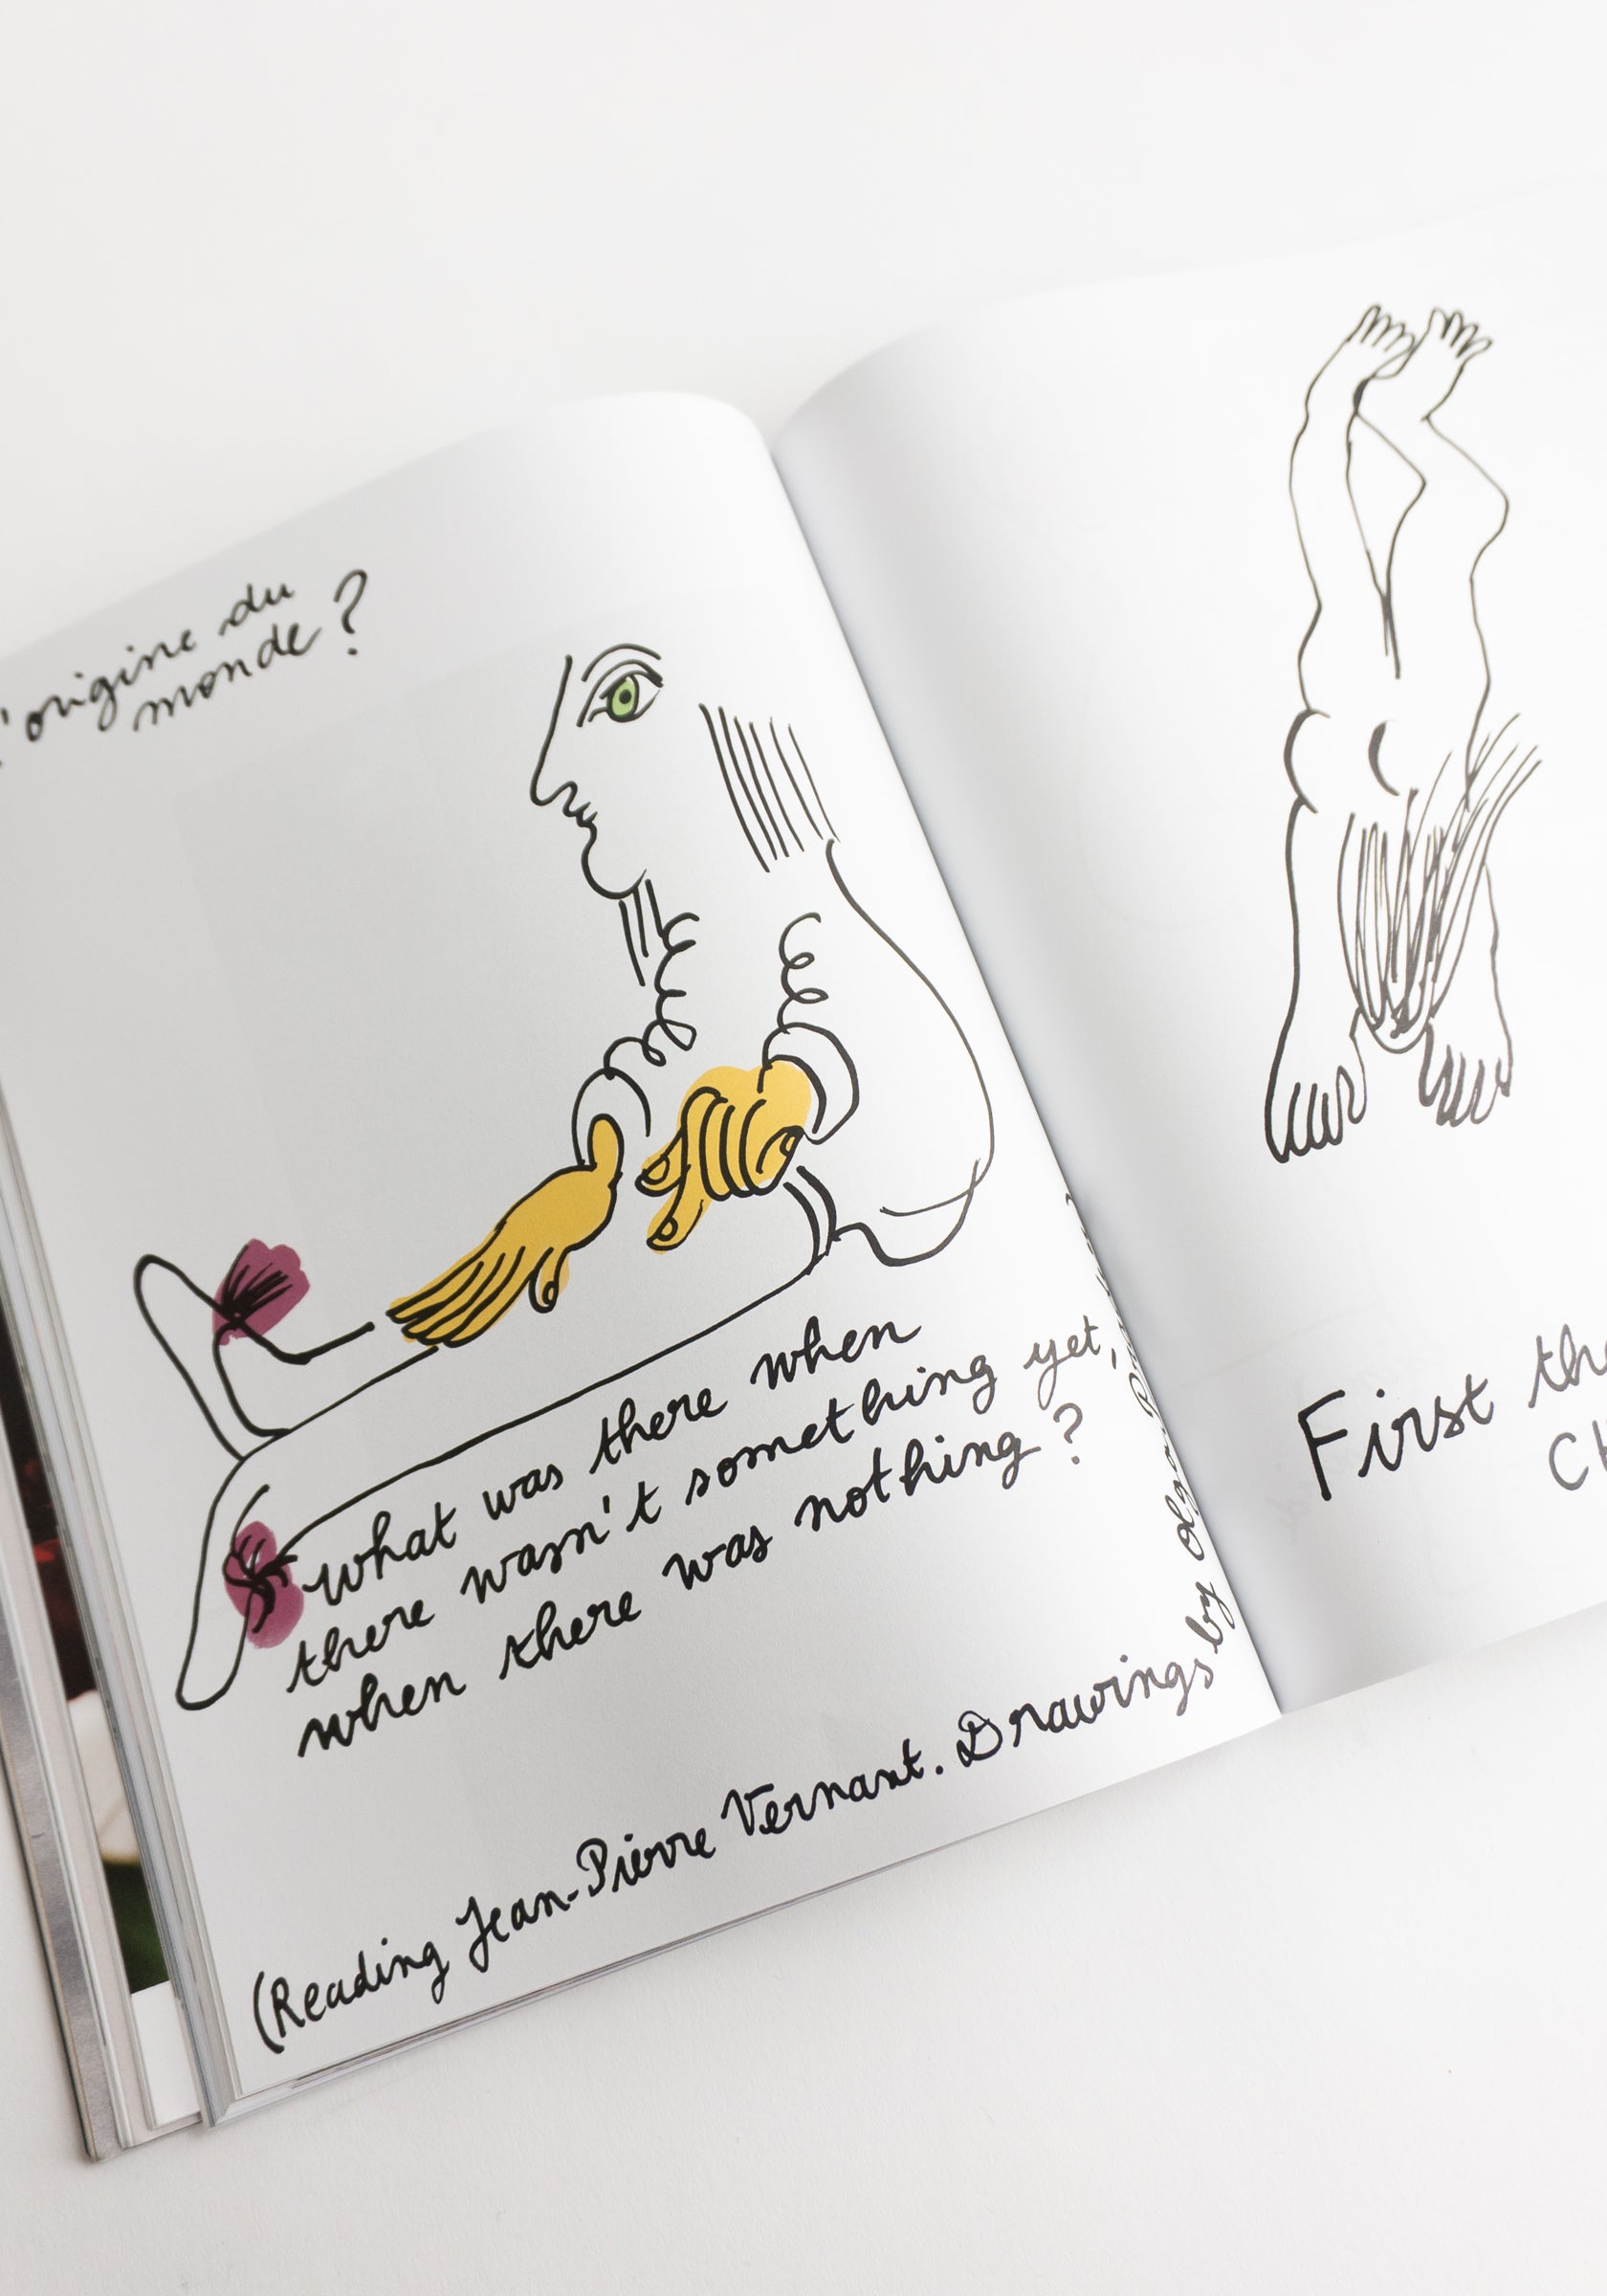 l'origine du
monde?
what was there when
there wasn't something yet,
when there was nothing?
(Reading Jean-Pierre Vernant. Drawings by Olga
First